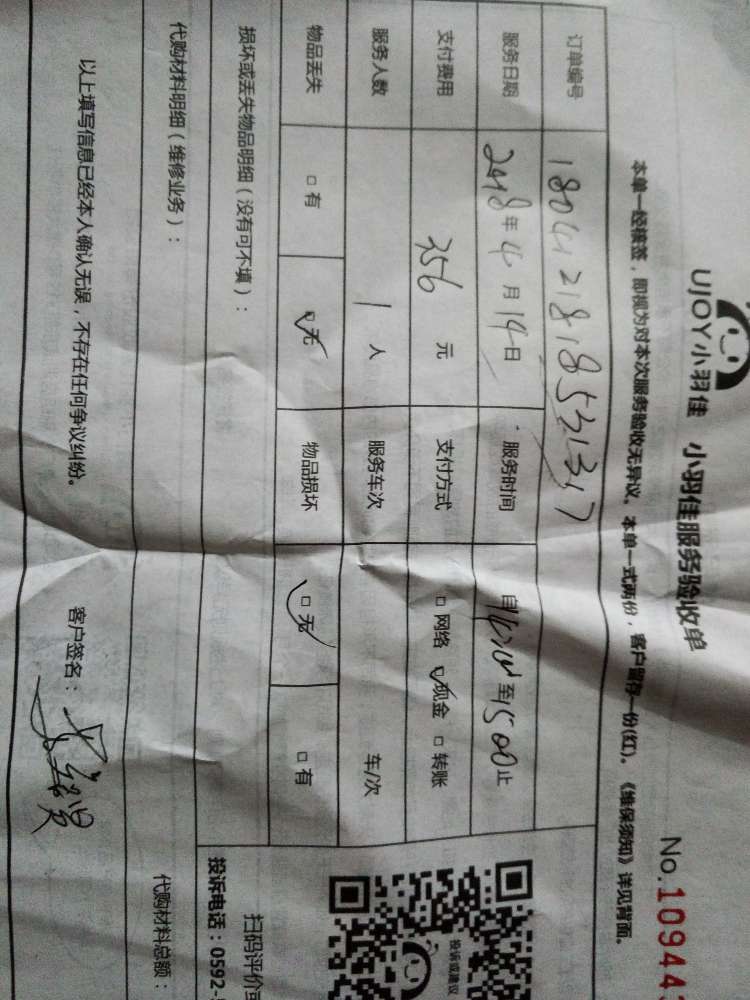 UJOY小羽佳 小羽佳服务验收单
No.10944
本单一经接签,即视为对本次服务验收无异议。本单一式两份,客户留存一份(红)。《维保须知》详见背面。
订单编号
服务日期 2018年4月14日 服务时间 自 至1500止
支付费用 356元 支付方式 □网络 ☑现金 □转账
服务人数 1人 服务车次 车/次
物品丢失 □有 ☑无 物品损坏 ☑无 □有
损坏或丢失物品明细(没有可不填):
代购材料明细(维修业务): 代购材料总额:
以上填写信息已经本人确认无误,不存在任何争议纠纷。 客户签名:
投诉或建议
扫码评价
投诉电话:0592-